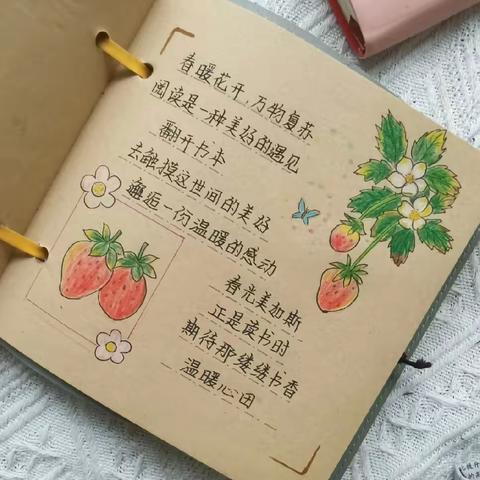 春暖花开，万物复苏
阅读是一种美好的遇见
翻开书本
去触摸这世间的美好
邂逅一份温暖的感动
春光美如斯
正是读书时
期待那缕缕书香
温暖心田